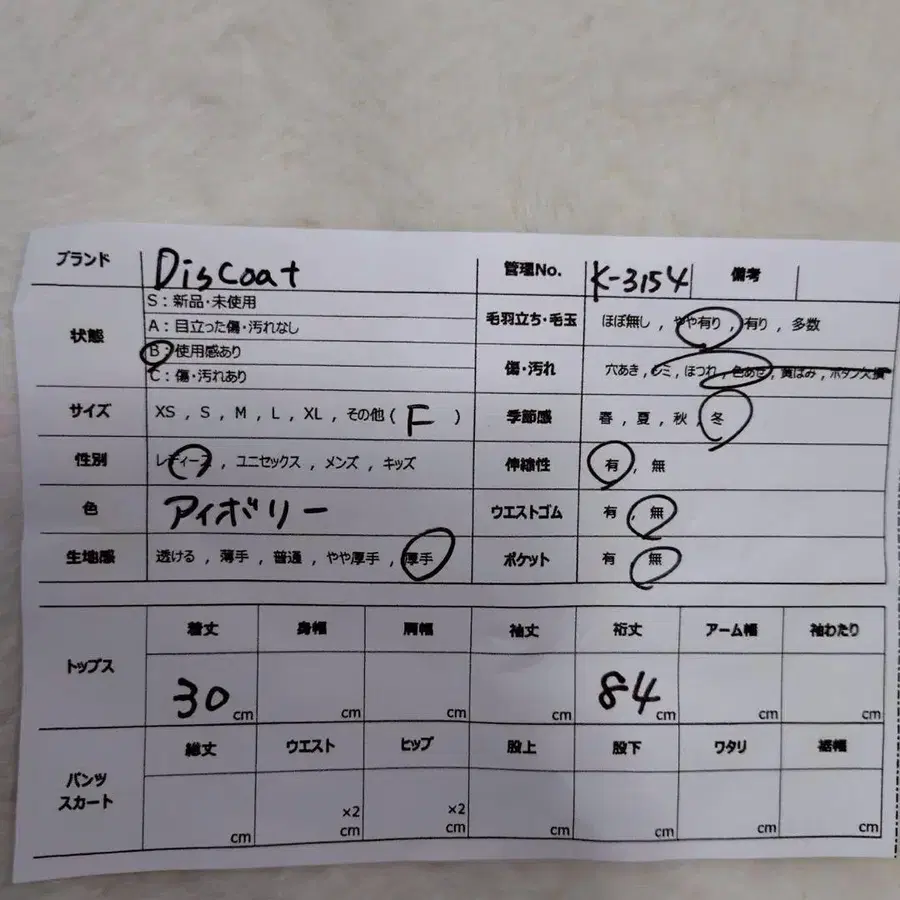 ブランド Discoat 管理No. K-3154 備考
状態 S：新品・未使用
A：目立った傷・汚れなし
B：使用感あり
C：傷・汚れあり
毛羽立ち・毛玉 ほぼ無し , やや有り , 有り , 多数
傷・汚れ 穴あき , シミ , ほつれ , 色あせ , 黄ばみ , ボタン欠損
サイズ XS , S , M , L , XL , その他 ( F ) 季節感 春 , 夏 , 秋 , 冬
性別 レディース , ユニセックス , メンズ , キッズ 伸縮性 有 , 無
色 アイボリー ウエストゴム 有 , 無
生地感 透ける , 薄手 , 普通 , やや厚手 , 厚手 ポケット 有 , 無
トップス 着丈 身幅 肩幅 袖丈 裄丈 アーム幅 袖わたり
30 cm cm cm cm 84 cm cm cm
パンツ
スカート
総丈 ウエスト ヒップ 股上 股下 ワタリ 裾幅
×2 ×2
cm cm cm cm cm cm cm